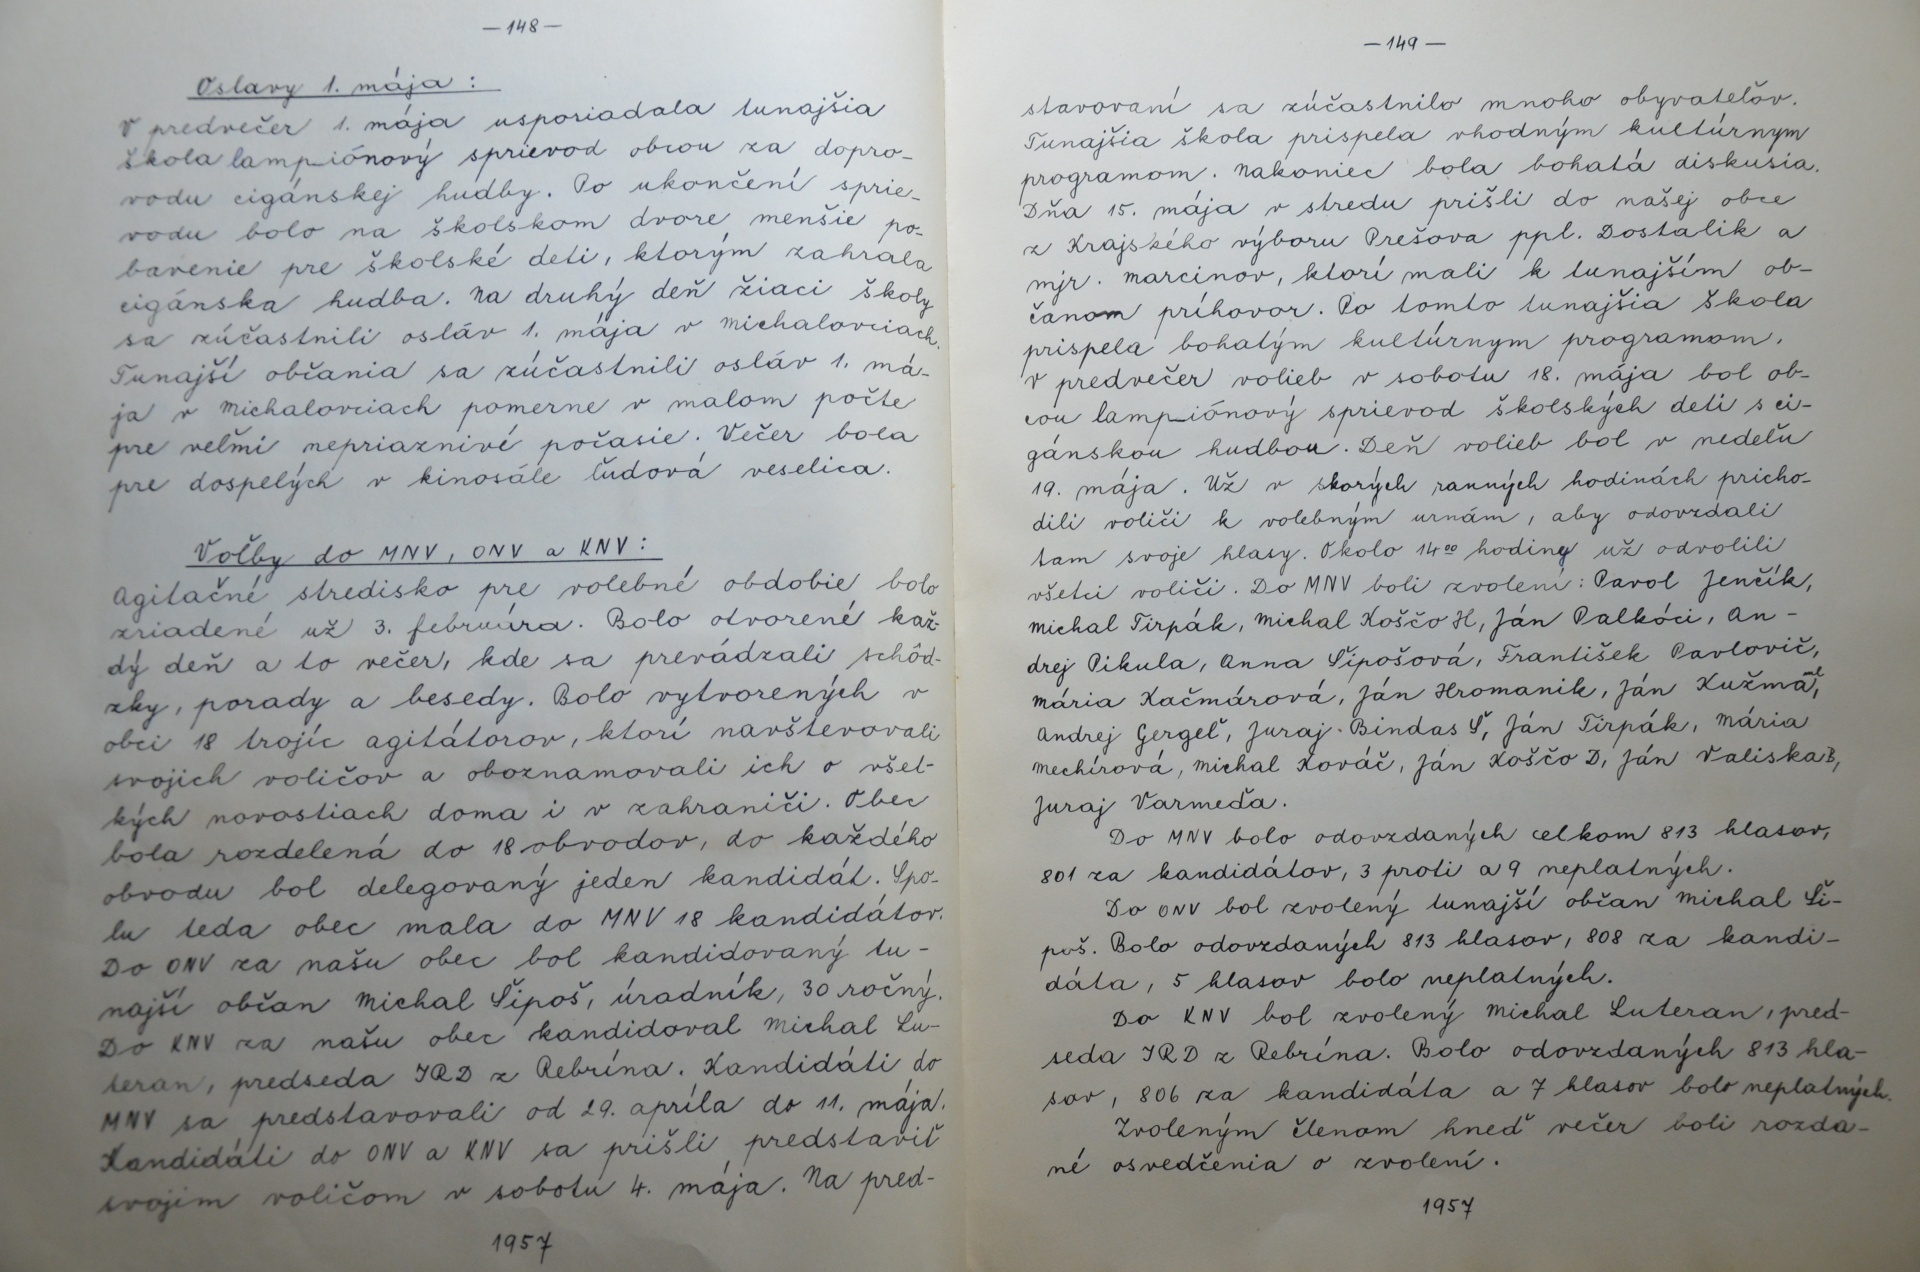 — 148 —
Oslavy 1. mája :
V predvečer 1. mája usporiadala tunajšia
škola lampiónový sprievod obcou za dopro-
vodu cigánskej hudby. Po ukončení sprie-
vodu bolo na školskom dvore menšie po-
bavenie pre školské deti, ktorým zahrala
cigánska hudba. Na druhý deň žiaci školy
sa zúčastnili osláv 1. mája v Michalovciach.
Tunajší občania sa zúčastnili osláv 1. má-
ja v Michalovciach pomerne v malom počte
pre veľmi nepriaznivé počasie. Večer bola
pre dospelých v kinosále ľudová veselica.
Voľby do MNV, ONV a KNV :
Agitačné stredisko pre volebné obdobie bolo
zriadené už 3. februára. Bolo otvorené kaž-
dý deň a to večer, kde sa prevádzali schôd-
zky, porady a besedy. Bolo vytvorených v
obci 18 trojíc agitátorov, ktorí navštevovali
svojich voličov a oboznamovali ich o všet-
kých novostiach doma i v zahraničí. Obec
bola rozdelená do 18 obvodov, do každého
obvodu bol delegovaný jeden kandidát. Spo-
lu teda obec mala do MNV 18 kandidátov.
Do ONV za našu obec bol kandidovaný tu-
najší občan Michal Šipoš, úradník, 30 ročný.
Do KNV za našu obec kandidoval Michal Lu-
teran, predseda JRD z Rebrína. Kandidáti do
MNV sa predstavovali od 29. apríla do 11. mája.
Kandidáti do ONV a KNV sa prišli predstaviť
svojim voličom v sobotu 4. mája. Na pred-
1957
— 149 —
stavovaní sa zúčastnilo mnoho obyvateľov.
Tunajšia škola prispela vhodným kultúrnym
programom. Nakoniec bola bohatá diskusia.
Dňa 15. mája v stredu prišli do našej obce
z Krajského výboru Prešova ppl. Dostalik a
mjr. Marcinov, ktorí mali k tunajším ob-
čanom príhovor. Po tomto tunajšia škola
prispela bohatým kultúrnym programom.
V predvečer volieb v sobotu 18. mája bol ob-
cou lampiónový sprievod školských deti s ci-
gánskou hudbou. Deň volieb bol v nedeľu
19. mája. Už v skorých ranných hodinách pricho-
dili voliči k volebným urnám, aby odovzdali
tam svoje hlasy. Okolo 14⁰⁰ hodiny už odvolili
všetci voliči. Do MNV boli zvolení : Pavol Jenčík,
Michal Tirpák, Michal Koščo H, Ján Palkóci, An-
drej Pikula, Anna Šipošová, František Pavlovič,
Mária Kačmárová, Ján Hromanik, Ján Kužma ml,
Andrej Gergeľ, Juraj Bindas Š, Ján Tirpák, Mária
Mechírová, Michal Kováč, Ján Koščo D, Ján Valiska B,
Juraj Varmeďa.
Do MNV bolo odovzdaných celkom 813 hlasov,
801 za kandidátov, 3 proti a 9 neplatných.
Do ONV bol zvolený tunajší občan Michal Ši-
poš. Bolo odovzdaných 813 hlasov, 808 za kandi-
dáta, 5 hlasov bolo neplatných.
Do KNV bol zvolený Michal Luteran, pred-
seda JRD z Rebrína. Bolo odovzdaných 813 hla-
sov, 806 za kandidáta a 7 hlasov bolo neplatných.
Zvoleným členom hneď večer boli rozda-
né osvedčenia o zvolení.
1957